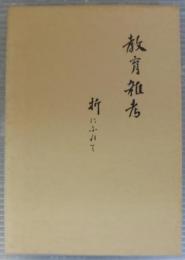 教育雑考
折にふれて